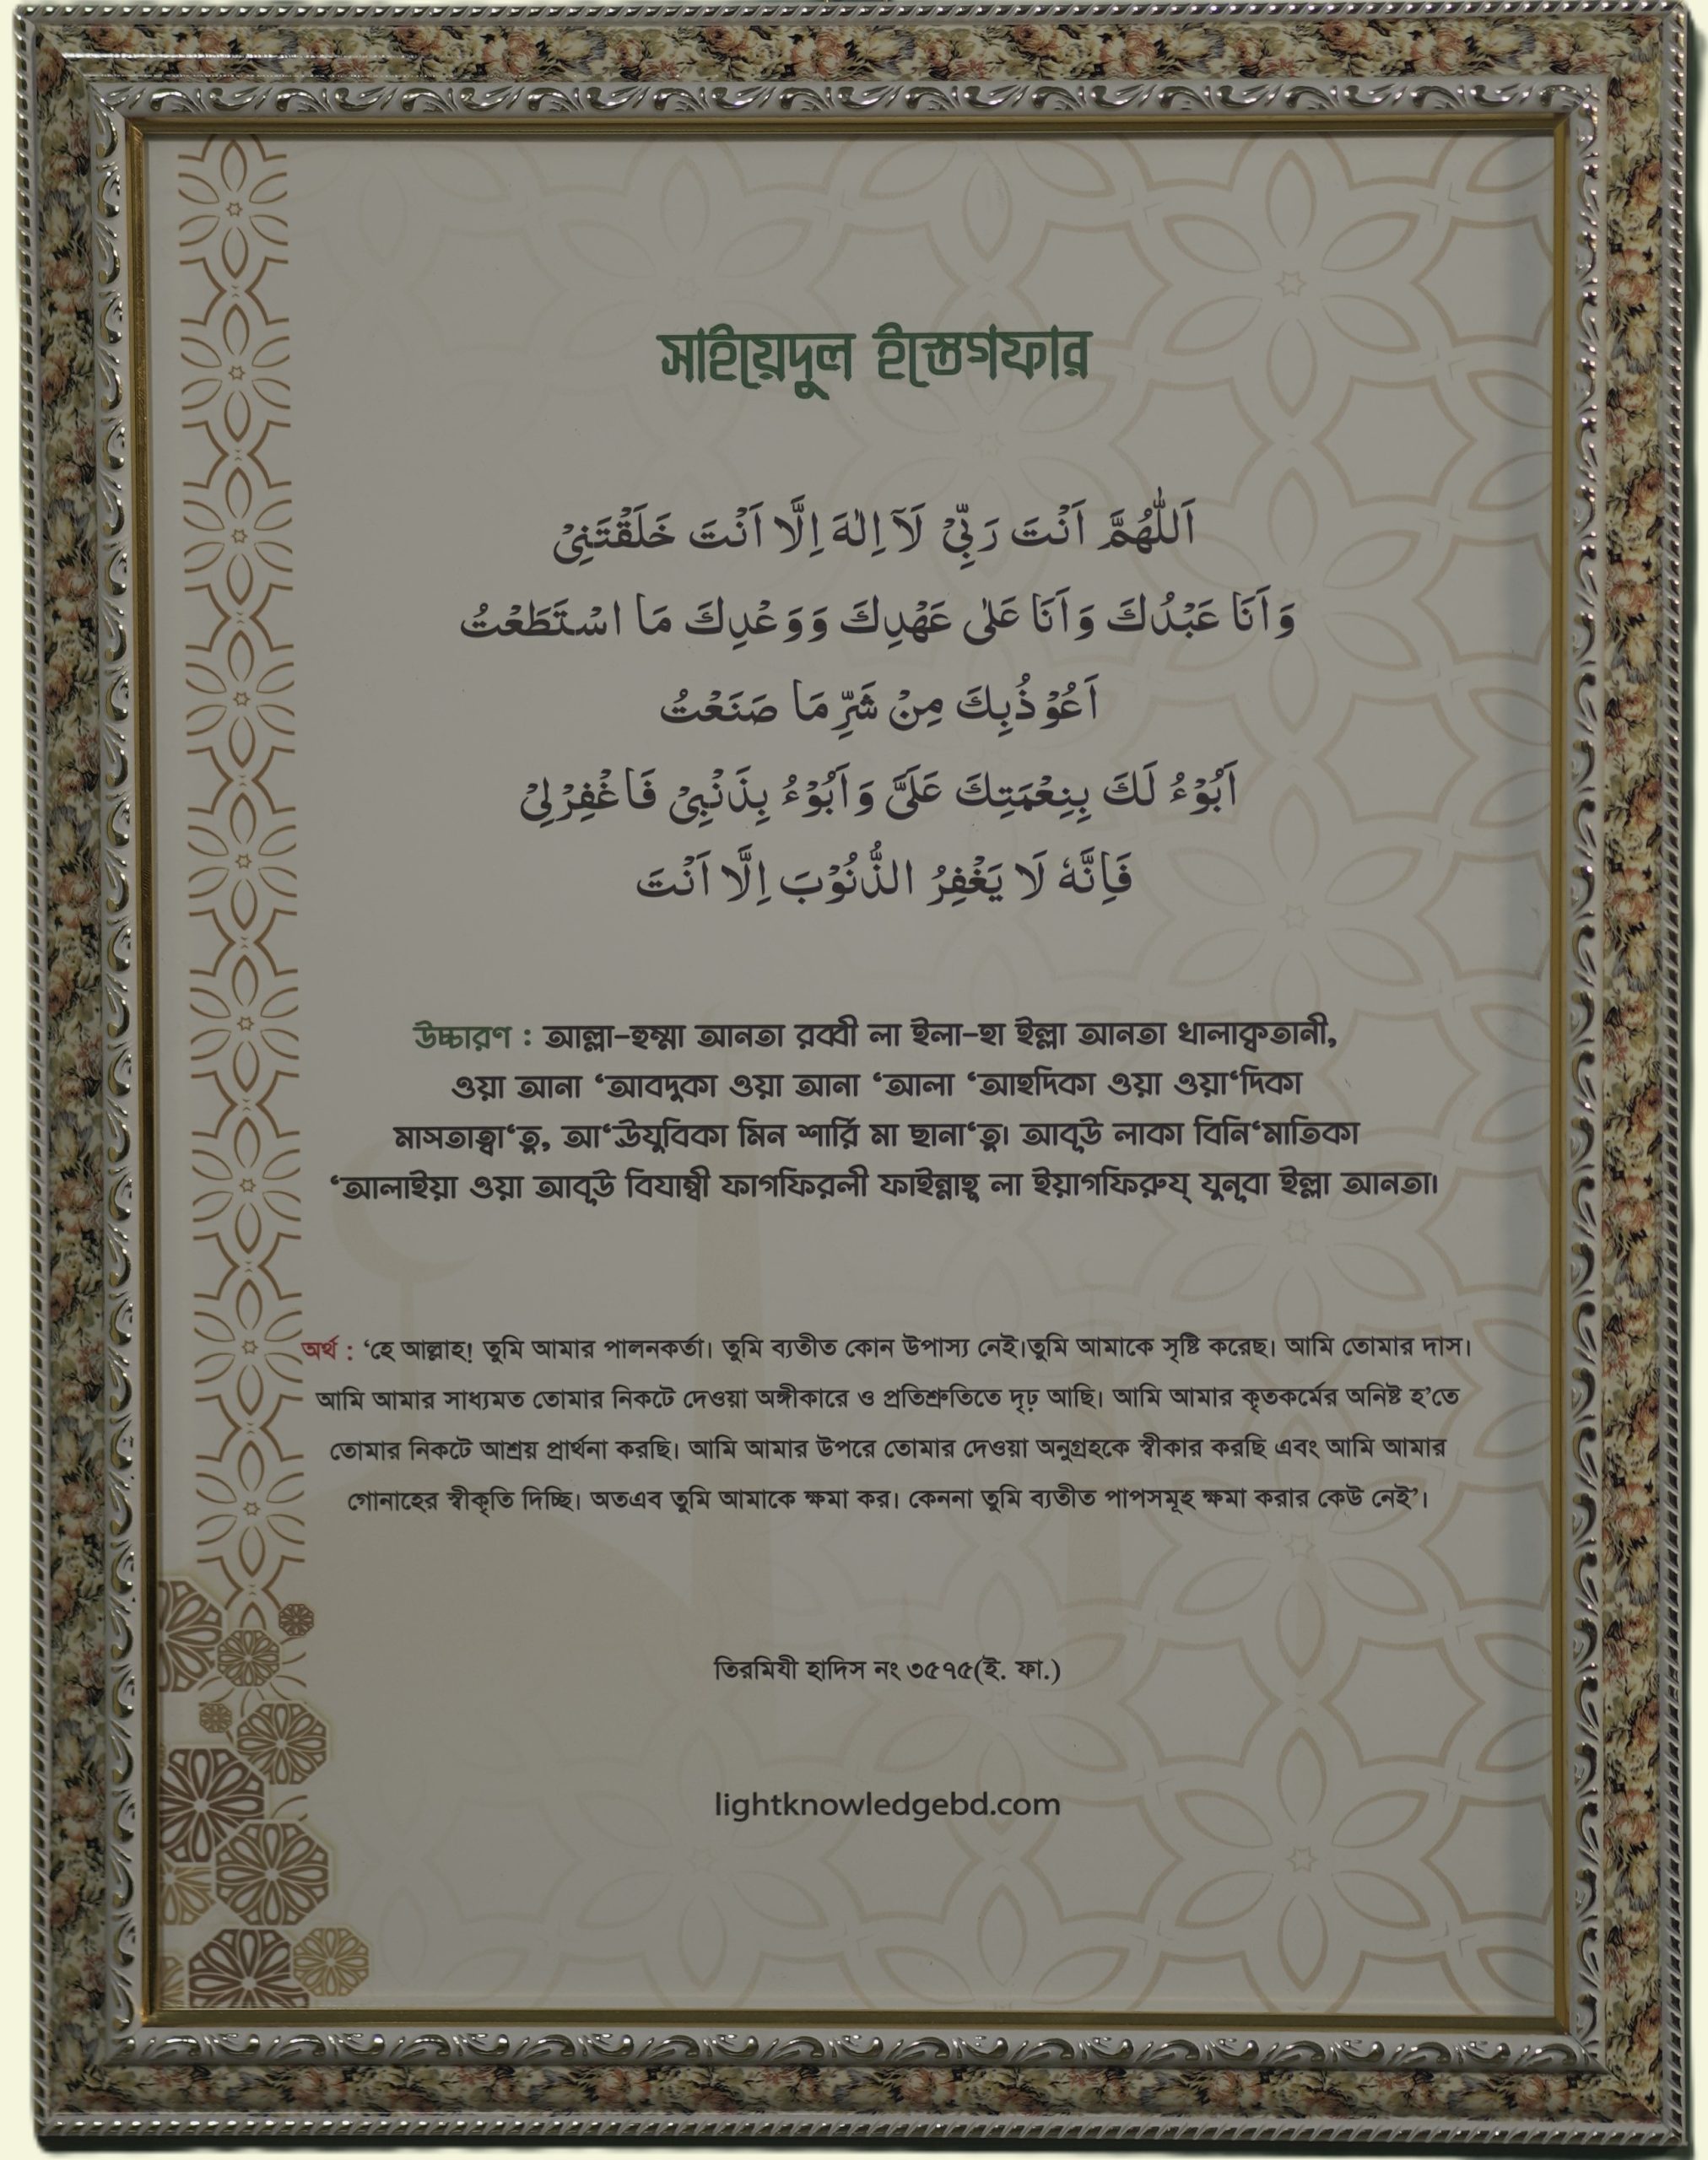 সাইয়েদুল ইস্তেগফার
اَللّٰهُمَّ اَنْتَ رَبِّيْ لَآ اِلٰهَ اِلَّا اَنْتَ خَلَقْتَنِيْ
وَاَنَا عَبْدُكَ وَاَنَا عَلٰى عَهْدِكَ وَوَعْدِكَ مَا اسْتَطَعْتُ
اَعُوْذُبِكَ مِنْ شَرِّ مَا صَنَعْتُ
اَبُوْءُ لَكَ بِنِعْمَتِكَ عَلَيَّ وَاَبُوْءُ بِذَنْبِيْ فَاغْفِرْلِيْ
فَاِنَّهٗ لَا يَغْفِرُ الذُّنُوْبَ اِلَّا اَنْتَ
উচ্চারণ : আল্লা-হুম্মা আনতা রব্বী লা ইলা-হা ইল্লা আনতা খালাক্বতানী,
ওয়া আনা ‘আবদুকা ওয়া আনা ‘আলা ‘আহদিকা ওয়া ওয়া‘দিকা
মাসতাত্বা‘তু, আ‘ঊযুবিকা মিন শার্রি মা ছানা‘তু। আবূউ লাকা বিনি‘মাতিকা
‘আলাইয়া ওয়া আবূউ বিযাম্বী ফাগফিরলী ফাইন্নাহূ লা ইয়াগফিরুয্ যুনূবা ইল্লা আনতা।
অর্থ : ‘হে আল্লাহ! তুমি আমার পালনকর্তা। তুমি ব্যতীত কোন উপাস্য নেই।তুমি আমাকে সৃষ্টি করেছ। আমি তোমার দাস।
আমি আমার সাধ্যমত তোমার নিকটে দেওয়া অঙ্গীকারে ও প্রতিশ্রুতিতে দৃঢ় আছি। আমি আমার কৃতকর্মের অনিষ্ট হ’তে
তোমার নিকটে আশ্রয় প্রার্থনা করছি। আমি আমার উপরে তোমার দেওয়া অনুগ্রহকে স্বীকার করছি এবং আমি আমার
গোনাহের স্বীকৃতি দিচ্ছি। অতএব তুমি আমাকে ক্ষমা কর। কেননা তুমি ব্যতীত পাপসমূহ ক্ষমা করার কেউ নেই’।
তিরমিযী হাদিস নং ৩৫৭৫(ই. ফা.)
lightknowledgebd.com